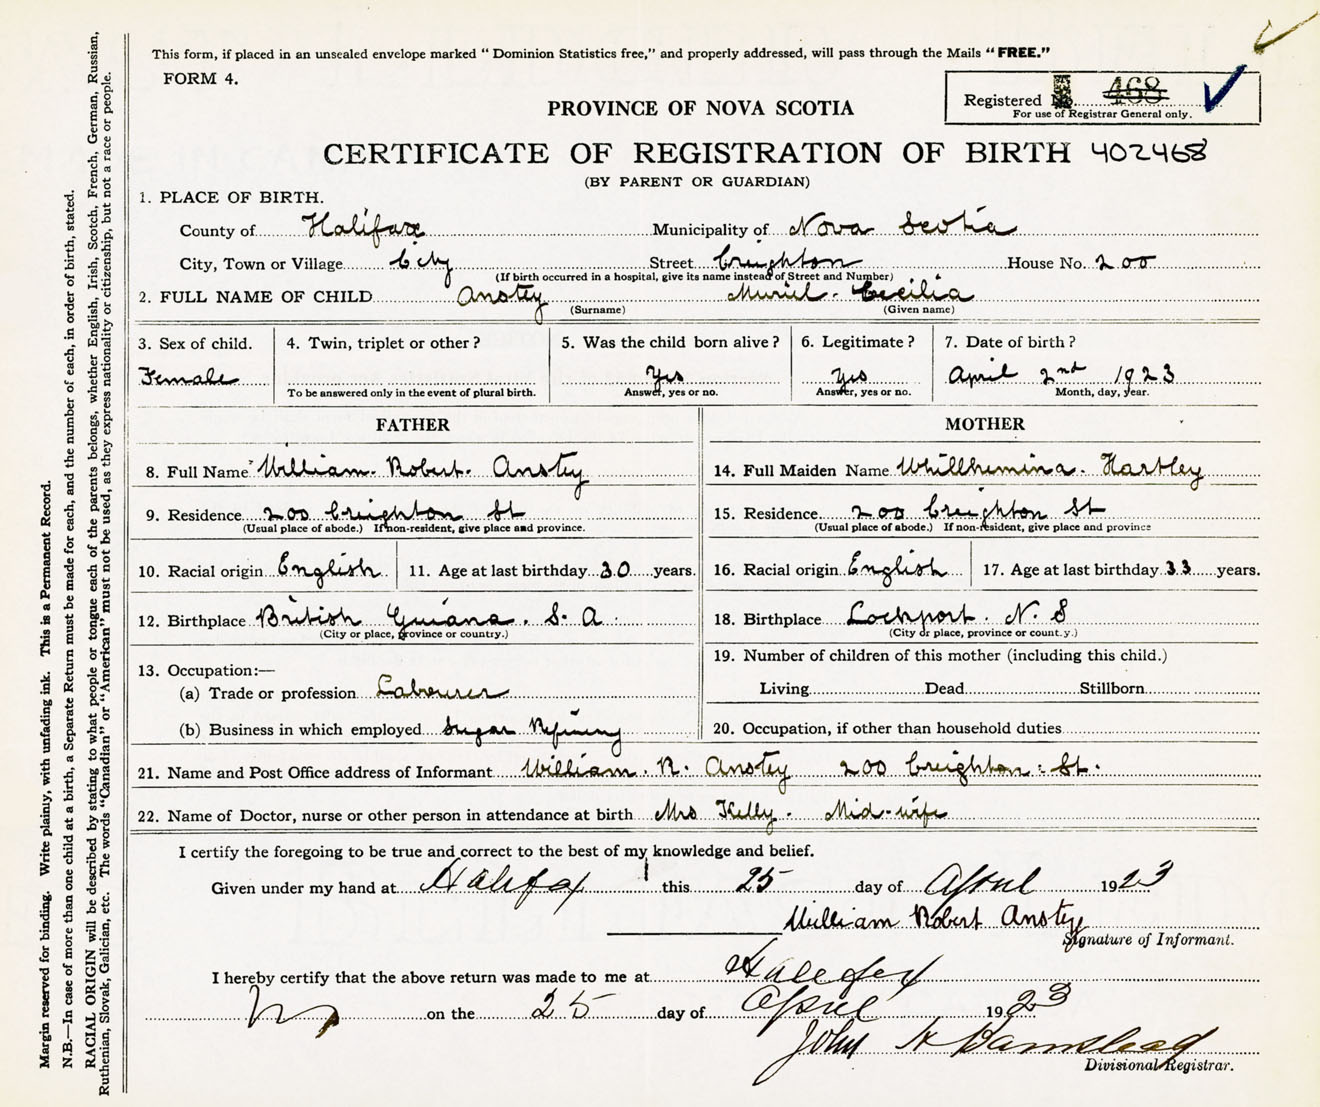 This form, if placed in an unsealed envelope marked “ Dominion Statistics free,” and properly addressed, will pass through the Mails “ FREE.”
FORM 4.
Registered No. 468
For use of Registrar General only.
PROVINCE OF NOVA SCOTIA
CERTIFICATE OF REGISTRATION OF BIRTH 402468
(BY PARENT OR GUARDIAN)
1. PLACE OF BIRTH.
County of Halifax Municipality of Nova Scotia
City, Town or Village City Street Creighton House No. 200
(If birth occurred in a hospital, give its name instead of Street and Number)
2. FULL NAME OF CHILD Anstey Muriel. Cecilia
(Surname) (Given name)
3. Sex of child. 4. Twin, triplet or other ? 5. Was the child born alive ? 6. Legitimate ? 7. Date of birth ?
Female Yes Yes April 2nd 1923
To be answered only in the event of plural birth. Answer, yes or no. Answer, yes or no. Month, day, year.
FATHER
8. Full Name William. Robert. Anstey
9. Residence 200 Creighton St
(Usual place of abode.) If non-resident, give place and province.
10. Racial origin English 11. Age at last birthday 30 years.
12. Birthplace British Guiana. S. A.
(City or place, province or country.)
13. Occupation:—
(a) Trade or profession Labourer
(b) Business in which employed Sugar Refining
MOTHER
14. Full Maiden Name Whillhemina. Hartley
15. Residence 200 Creighton St
(Usual place of abode.) If non-resident, give place and province
16. Racial origin English 17. Age at last birthday 33 years.
18. Birthplace Lockport. N. S
(City or place, province or count.y.)
19. Number of children of this mother (including this child.)
Living Dead Stillborn
20. Occupation, if other than household duties
21. Name and Post Office address of Informant William. R. Anstey 200 Creighton. St.
22. Name of Doctor, nurse or other person in attendance at birth Mrs Kelly. Mid-wife
I certify the foregoing to be true and correct to the best of my knowledge and belief.
Given under my hand at Halifax this 25 day of April 1923
William Robert Anstey
Signature of Informant.
I hereby certify that the above return was made to me at Halifax
NS on the 25 day of April 1923
John H Barnstead
Divisional Registrar.
Margin reserved for binding. Write plainly, with unfading ink. This is a Permanent Record.
N.B.—In case of more than one child at a birth, a Separate Return must be made for each, and the number of each, in order of birth, stated.
RACIAL ORIGIN will be described by stating to what people or tongue each of the parents belongs, whether English, Irish, Scotch, French, German, Russian,
Ruthenian, Slovak, Galician, etc. The words “Canadian” or “American” must not be used, as they express nationality or citizenship, but not a race or people.